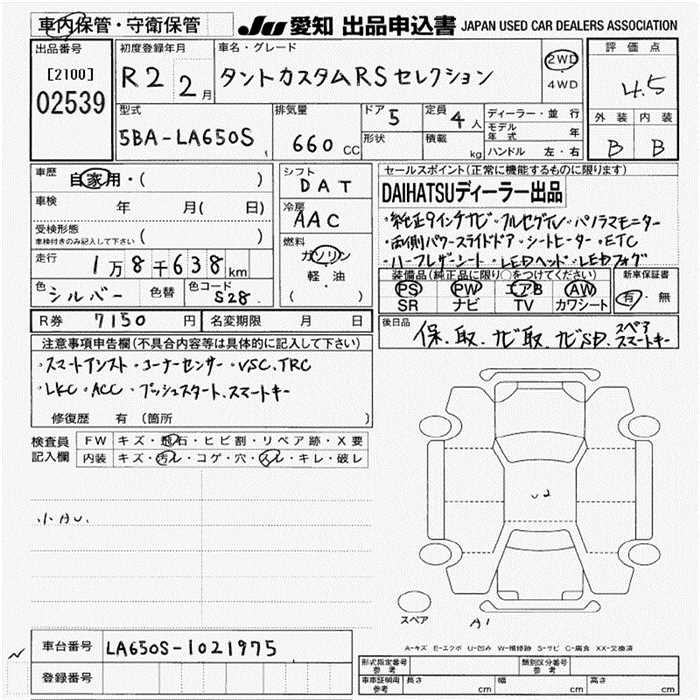 車内保管・守衛保管
JU 愛知 出品申込書 JAPAN USED CAR DEALERS ASSOCIATION
出品番号
[2100]
02539
初度登録年月
R2 2月
車名・グレード
タントカスタムRSセレクション
2WD
・
4WD
評価点
4.5
外装 内装
B B
型式
5BA-LA650S
排気量
660 CC
ドア 5
形状
定員 4人
積載 kg
ディーラー・並行
モデル年式 年
ハンドル 左・右
車歴
自家用・( )
車検 年 月( 日)
受検形態
車検付きのみ記入して下さい ( )
走行
1万8千638km
色 シルバー 色替 色コード S28.
シフト
DAT
冷房
AAC
燃料
ガソリン
軽・油
( )
セールスポイント(正常に機能するものに限ります)
DAIHATSUディーラー出品
・純正9インチナビ・フルセグTV・パノラマモニター
・両側パワースライドドア・シートヒーター・ETC
・ハーフレザーシート・LEDヘッド・LEDフォグ
装備品(純正品に限り○をつけてください)
PS PW エアB AW
SR ナビ TV カワシート
新車保証書
有・無
R券 7150円 名変期限 月 日
後日品
保.取.ナビ取.ナビSD.スペアスマートキー
注意事項申告欄(不具合内容等は具体的に記入して下さい)
・スマートアシスト・コーナーセンサー・VSC.TRC
・LKC・ACC・プッシュスタート.スマートキー
修復歴 有(箇所
検査員記入欄
FW キズ・飛石・ヒビ割・リペア跡・X要
内装 キズ・汚レ・コゲ・穴・スレ・キレ・破レ
小AU.
U2
スペア
A1
A-キズ E-エクボ U-凹み W-補修跡 S-サビ C-腐食 XX-交換済
車台番号 LA650S-1021975
登録番号
型式指定番号 参考
類別区分番号 参考
車車証明用 参考 長さ cm 幅 cm 高さ cm